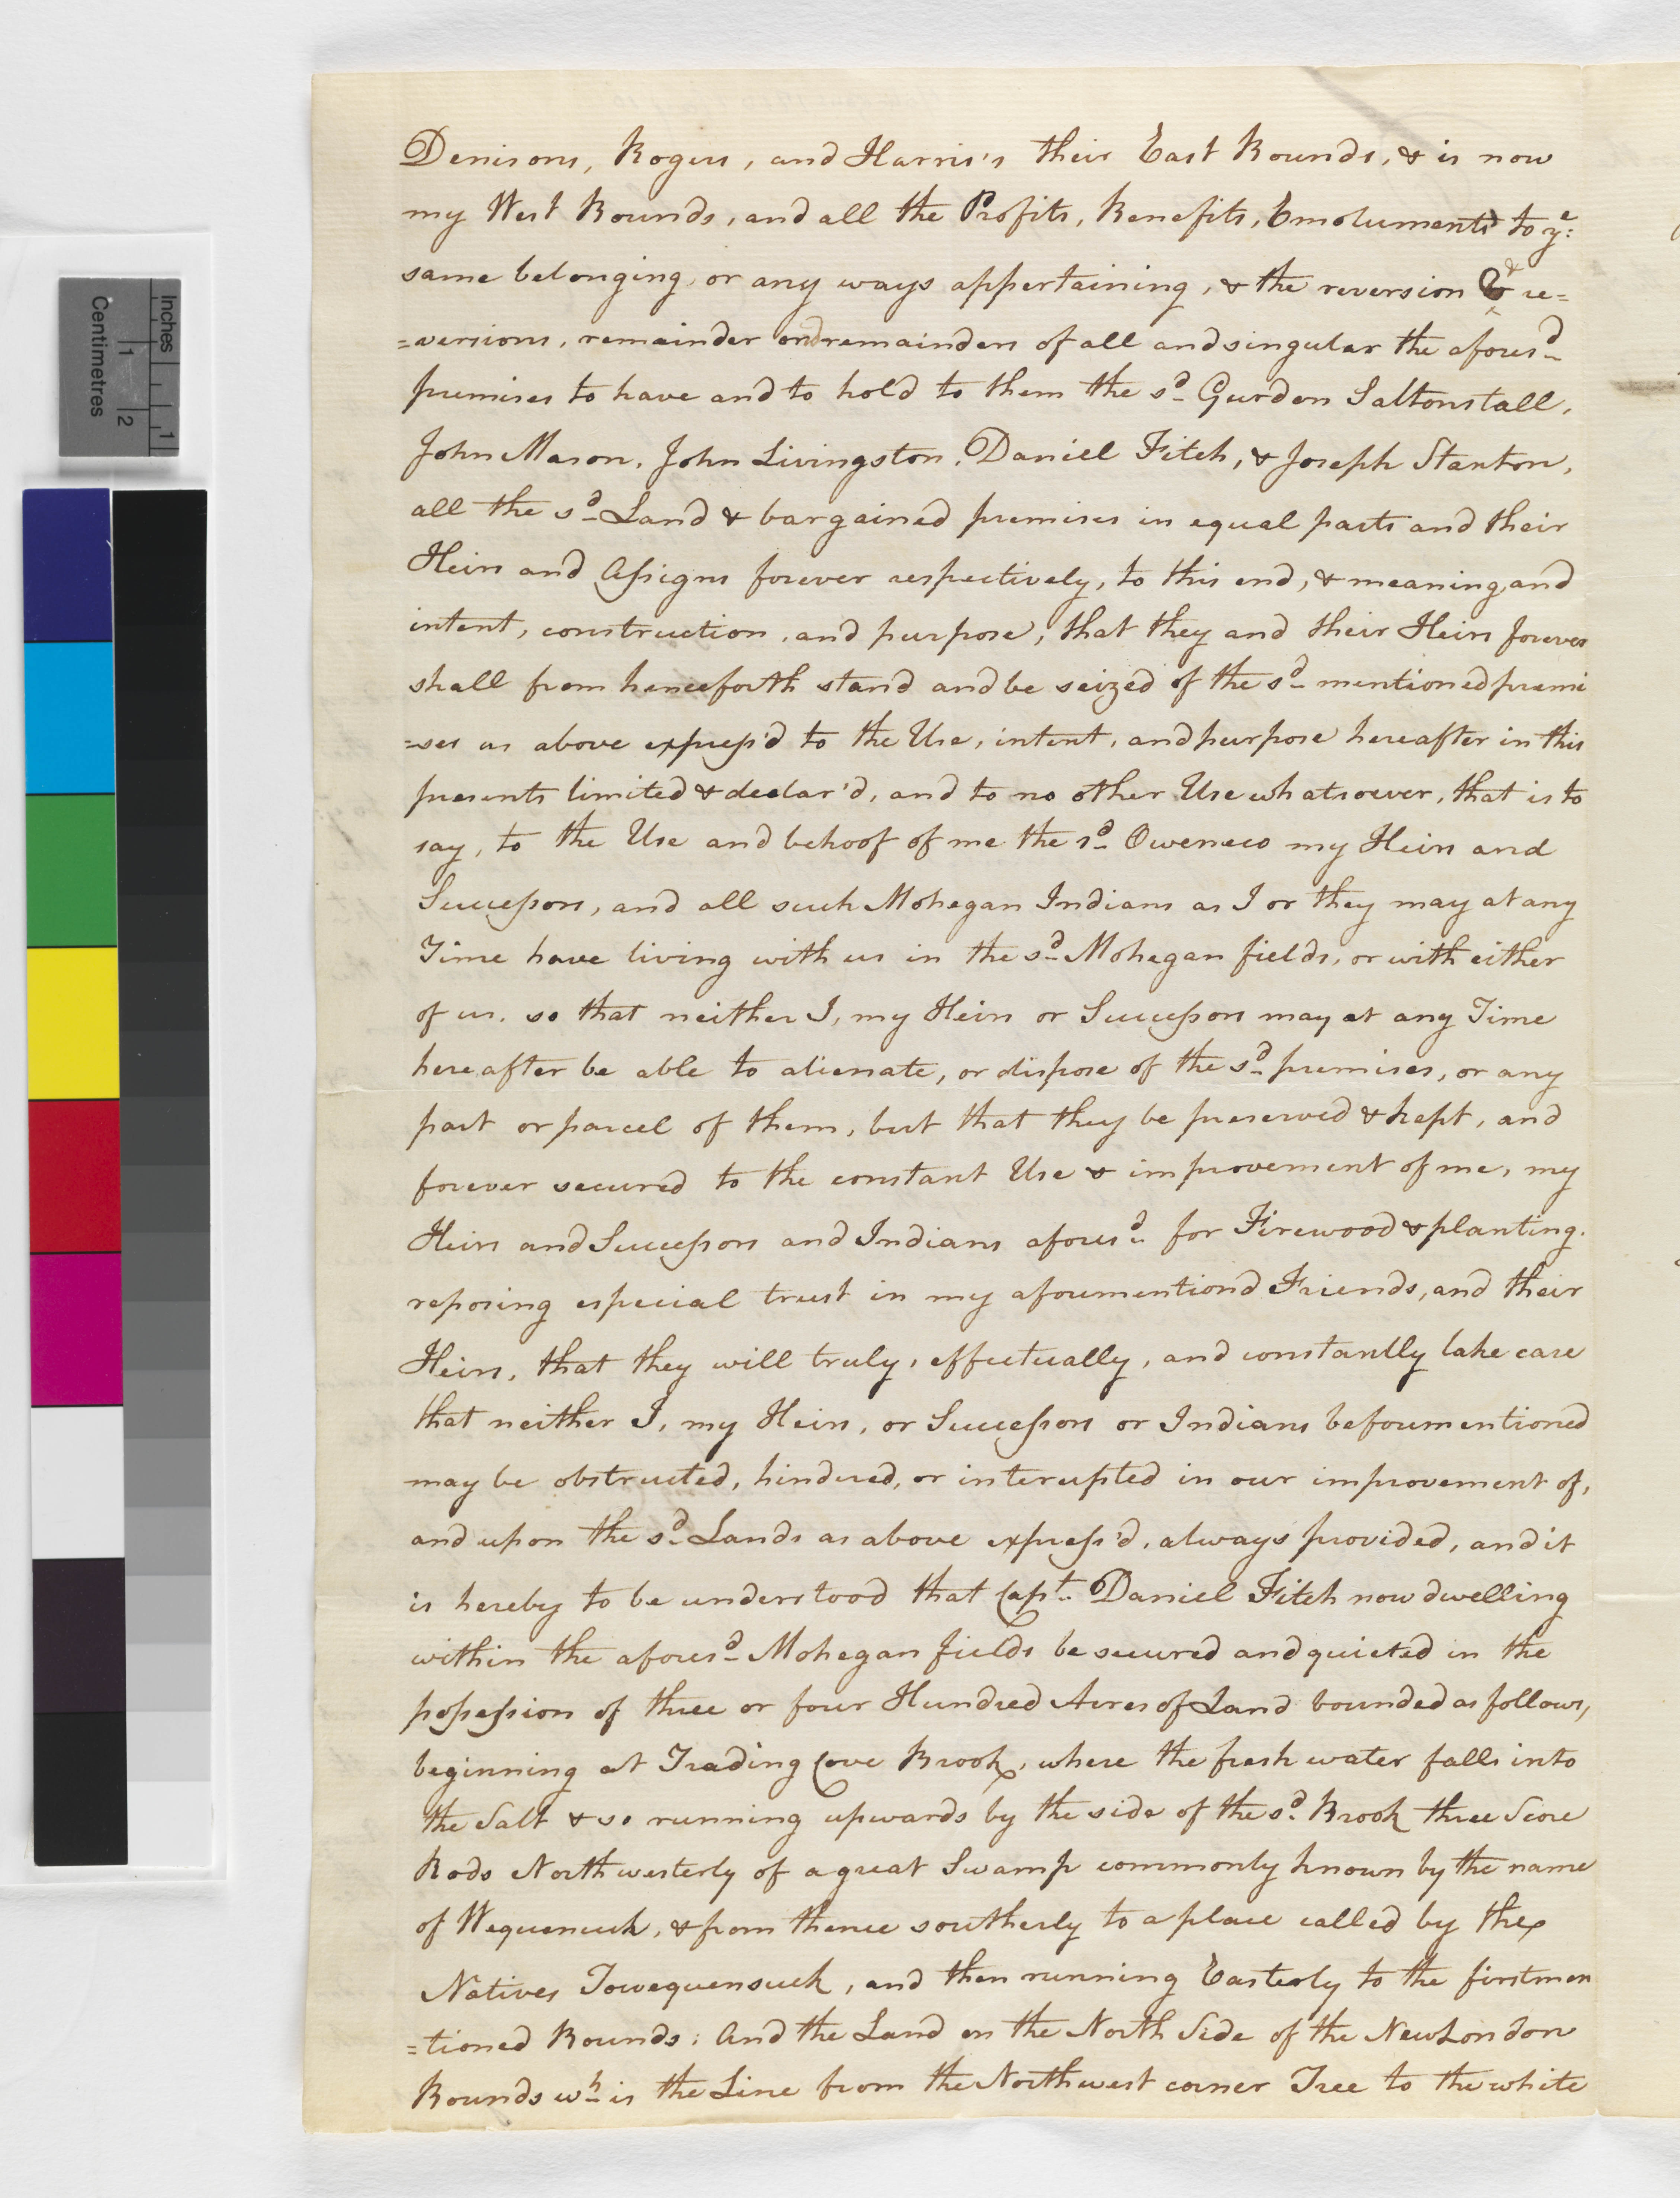 Inches
1
Centimetres
1
2
Denisons, Rogers, and Harris's their East Bounds, & is now
my West Bounds, and all the Profits, Benefits, Emoluments to yᵉ:
same belonging, or any ways appertaining, & the reversion & re=
=versions, remainder and remainders of all and singular the aforesᵈ
premises to have and to hold to them the sᵈ Gurdon Saltonstall,
John Mason, John Livingston, Daniel Fitch, & Joseph Stanton,
all the sᵈ Land & bargained premises in equal parts and their
Heirs and Assigns forever respectively, to this end, & meaning, and
intent, construction, and purpose, that they and their Heirs forever
shall from henceforth stand and be seized of the sᵈ mentioned premi
=ses as above express'd to the Use, intent, and purpose hereafter in this
presents limited & declar'd, and to no other Use whatsoever, that is to
say, to the Use and behoof of me the sᵈ Oweneco my Heirs and
Successors, and all such Mohegan Indians as I or they may at any
Time have living with us in the sᵈ Mohegan fields, or with either
of us. so that neither I, my Heirs or Successors may at any Time
hereafter be able to alienate, or dispose of the sᵈ premises, or any
part or parcel of them, but that they be preserved & kept, and
forever secured to the constant Use & improvement of me, my
Heirs and Successors and Indians aforesᵈ for Firewood & planting.
reposing especial trust in my aforementiond Friends, and their
Heirs, that they will truly, effectually, and constantly take care
that neither I, my Heirs, or Successors or Indians beforementioned
may be obstructed, hindered, or interupted in our improvement of,
and upon the sᵈ Lands as above express'd, always provided, and it
is hereby to be understood that Capᵗ Daniel Fitch now dwelling
within the aforesᵈ Mohegan fields be secured and quieted in the
possession of three or four Hundred Acres of Land bounded as follows,
beginning at Trading Cove Brook, where the fresh water falls into
the Salt & so running upwards by the side of the sᵈ Brook three Score
Rods Northwesterly of a great Swamp commonly known by the name
of Wequenuck, & from thence southerly to a place called by the
Natives Towequensuck, and then running Easterly to the first men
=tioned Bounds: And the Land on the North Side of the New London
Bounds wʰ is the Line from the Northwest corner Tree to the white